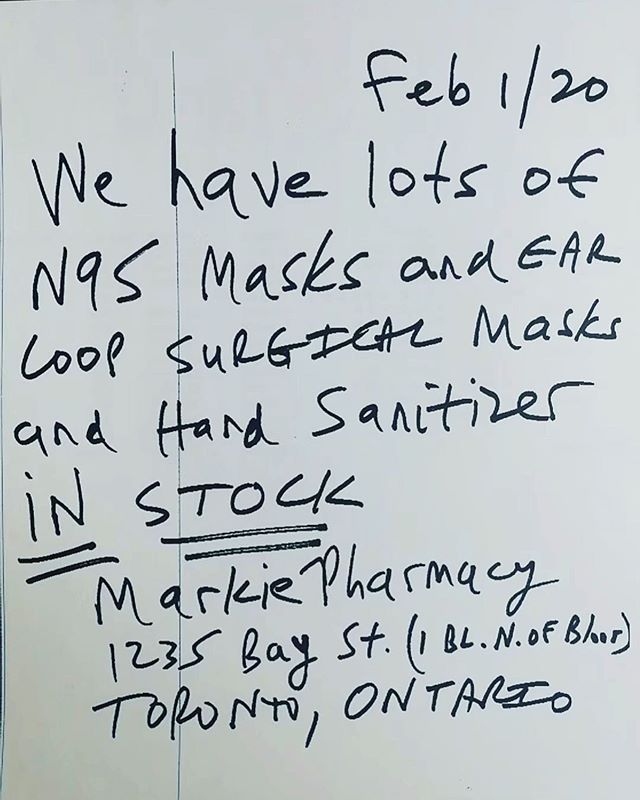 Feb 1/20
We have lots of
N95 Masks and EAR
LOOP SURGICAL Masks
and Hand Sanitizer
IN STOCK
Markie Pharmacy
1235 Bay St. (1 BL. N. OF Bloor)
TORONTO, ONTARIO